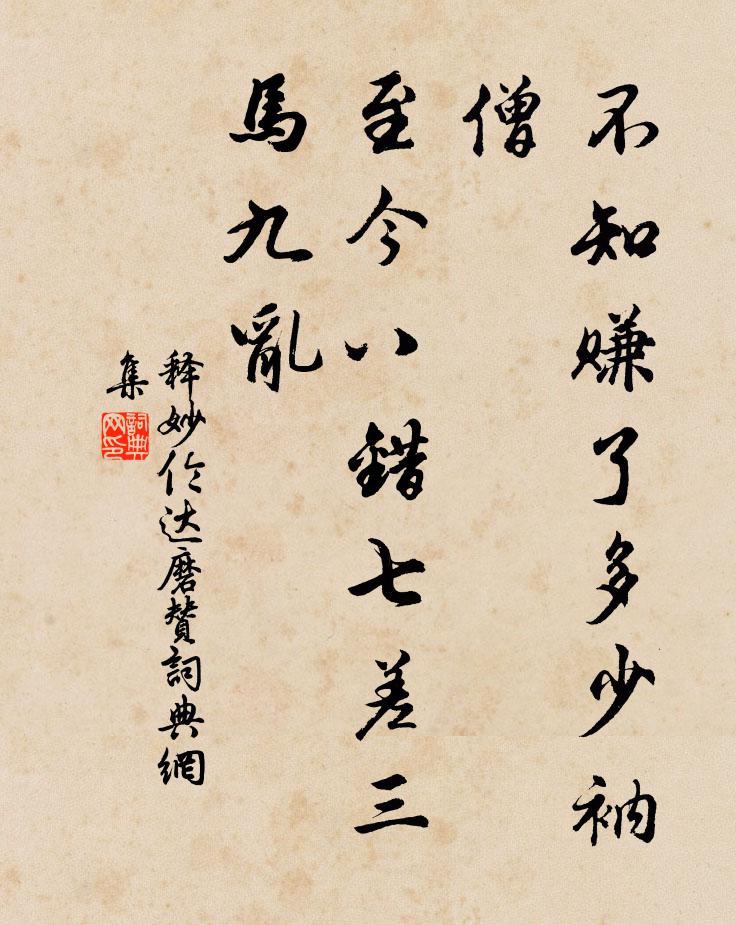 不知赚了多少衲
僧
至今八错七差三
馬九亂
释妙伦达磨贊詞典網
集
詞典
网印